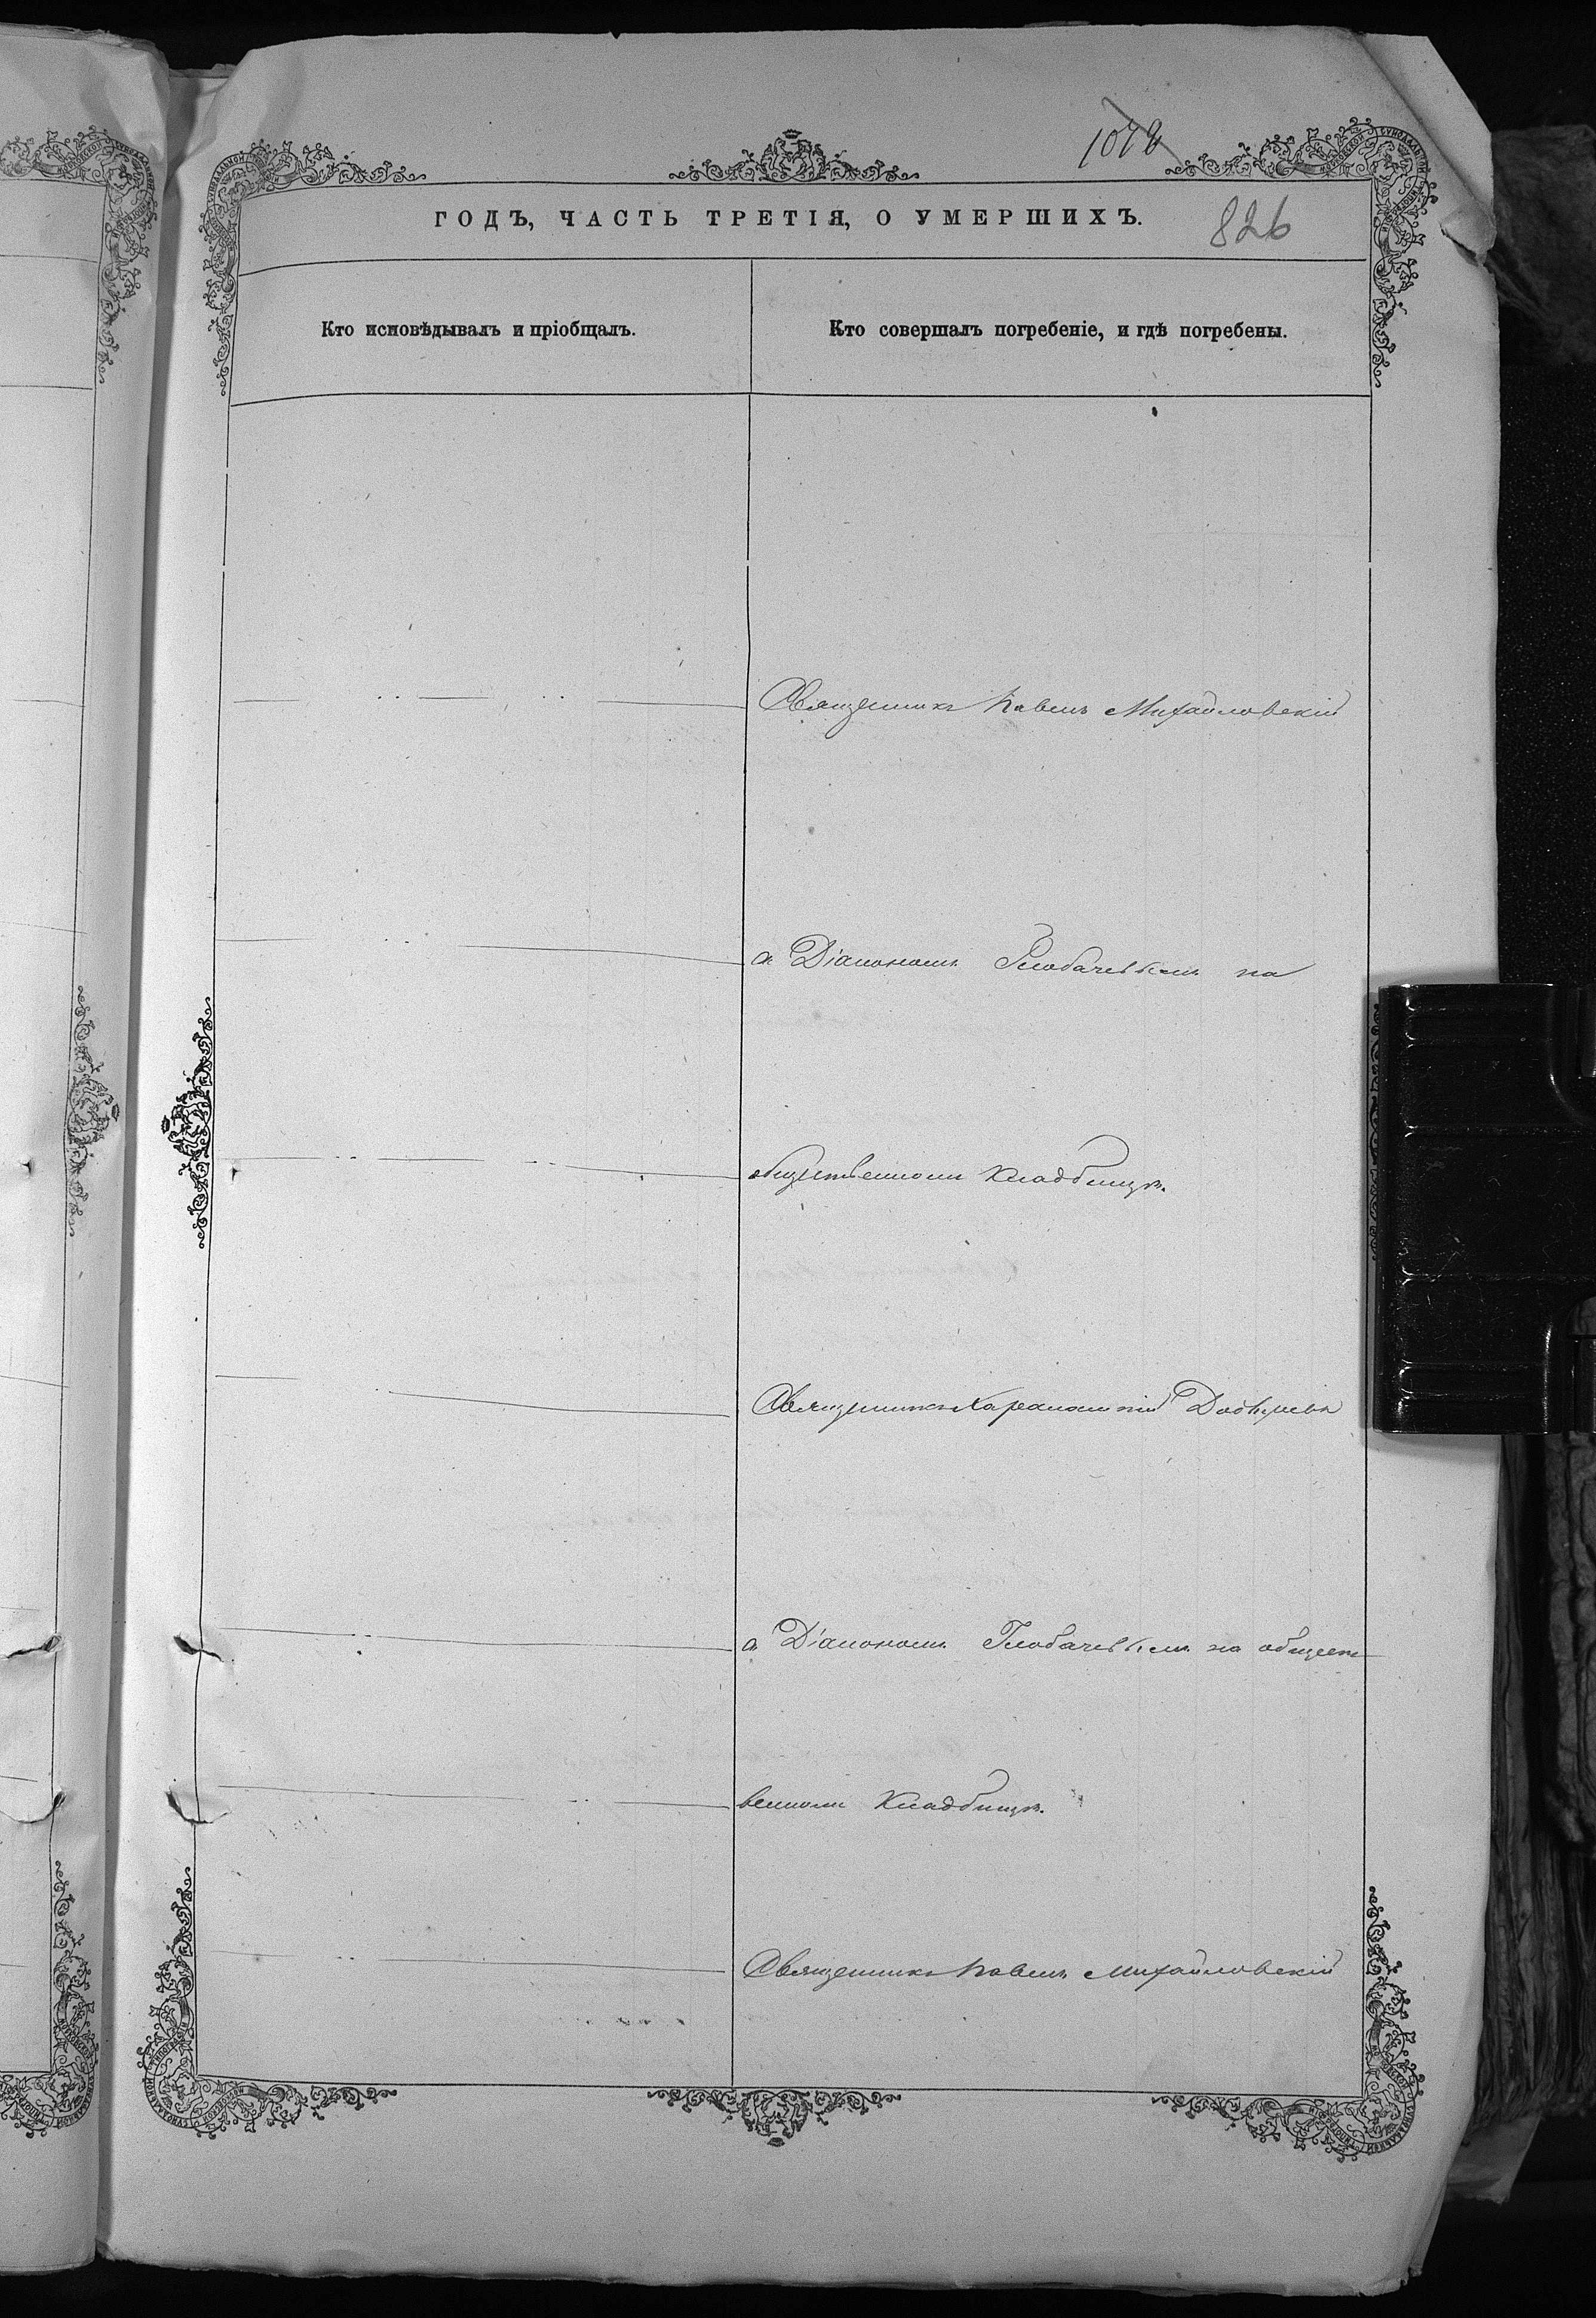 1078
ГОДЪ, ЧАСТЬ ТРЕТІЯ, О УМЕРШИХЪ.
826
Кто исповѣдывалъ и пріобщалъ.
Кто совершалъ погребеніе, и гдѣ погребены.
Священникъ Павелъ Михайловскій
съ Діакономъ Глобачевымъ на
общественномъ Кладбищѣ.
Священникъ
съ Діакономъ Глобачевымъ на общест
венномъ Кладбищѣ.
Священникъ Павелъ Михайловскій